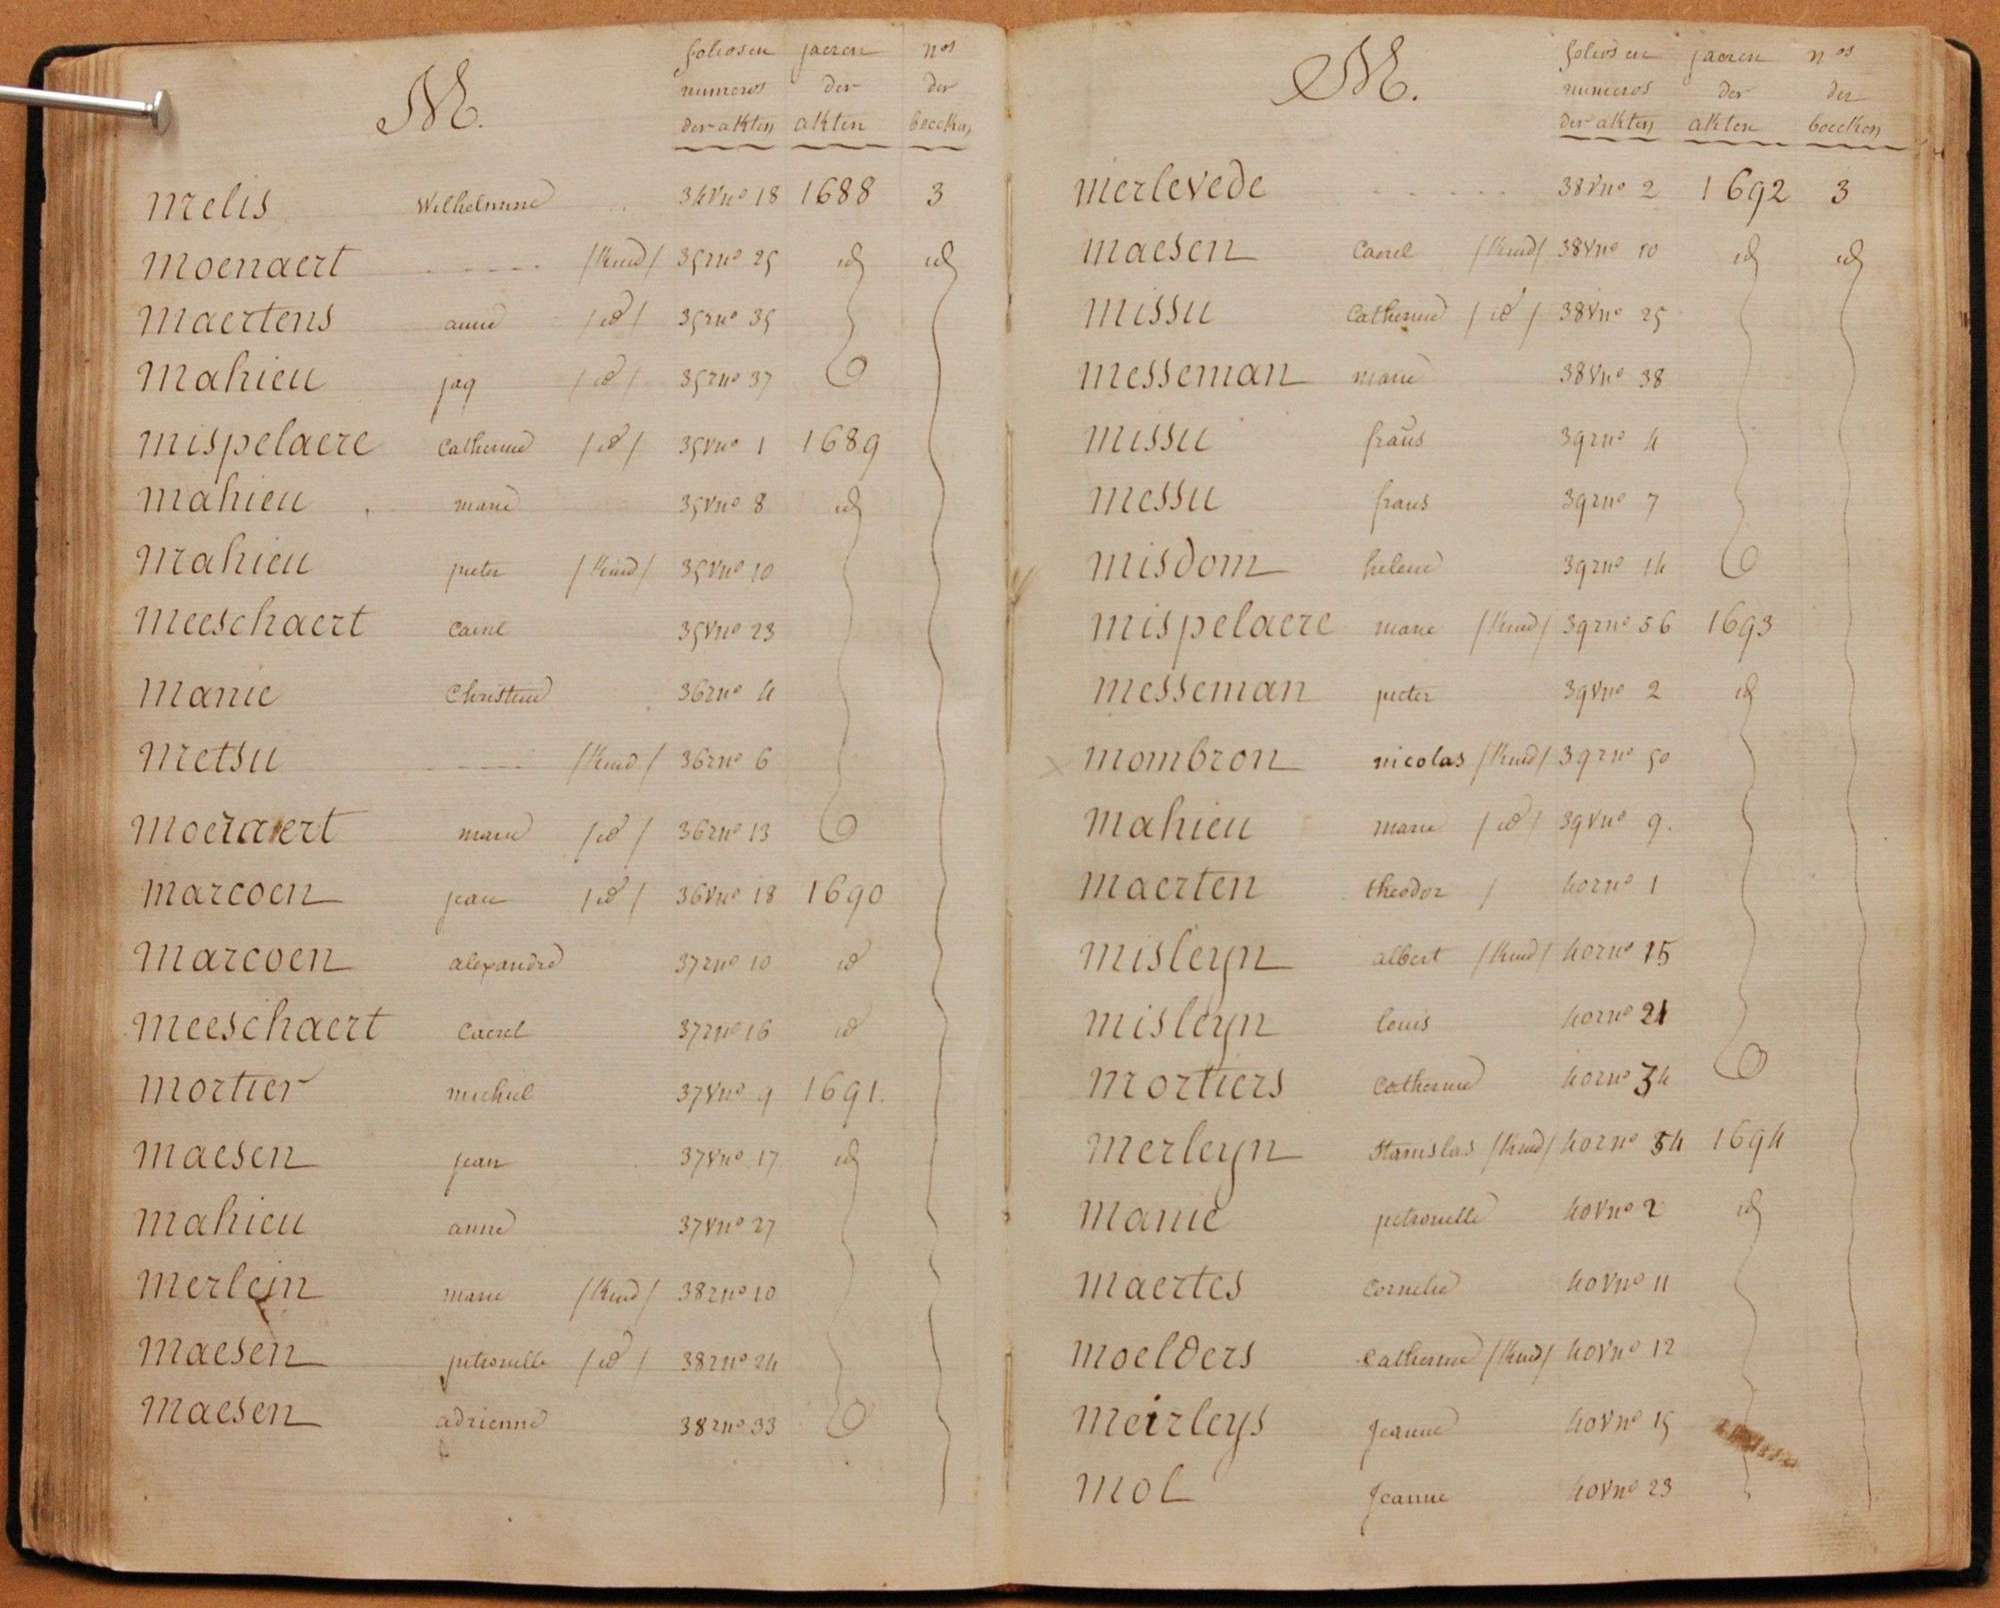 M. folios en jaeren nos
numeros der der
der akten akten boecken
melis Wilhelmine 34vno 18 1688 3
moenaert /kind/ 35rno 25 id id
maertens anne /id/ 35rno 35
mahieu jaq /id/ 35rno 37
mispelaere Catherine /id/ 35vno 1 1689
mahieu marie 35vno 8 id
mahieu pieter /kind/ 35vno 10
meeschaert Carel 35vno 23
manie Christine 36rno 4
metsu /kind/ 36rno 6
moeraert marie /id/ 36rno 13
marcoen jean /id/ 36vno 18 1690
marcoen alexandre 37rno 10 id
meeschaert Caerel 37rno 16 id
mortier michiel 37vno 9 1691.
maesen jean 37vno 17 id
mahieu anne 37vno 27
merlein marie /kind/ 38rno 10
maesen petronelle /id/ 38rno 24
maesen adrienne 38rno 33
M. folios en jaeren nos
numeros der der
der akten akten boecken
merlevede 38vno 2 1692 3
maesen Caerel /kind/ 38vno 10 id id
missu Catherine /id/ 38vno 25
messeman marie 38vno 38
missu frans 39rno 4
messu frans 39rno 7
misdom helene 39rno 14
mispelaere marie /kind/ 39rno 56 1693
messeman pieter 39vno 2 id
mombron nicolas /kind/ 39rno 50
mahieu marie /id/ 39vno 9.
maerten theodor / 40rno 1
misleyn albert /kind/ 40rno 15
misleyn louis 40rno 21
mortiers Catherine 40rno 34
merleyn Stanislas /kind/ 40rno 54 1694
manie petronelle 40vno 2 id
maertes Cornelie 40vno 11
moelders Catherine /kind/ 40vno 12
meirleys Jeanne 40vno 15
mol Jeanne 40vno 23